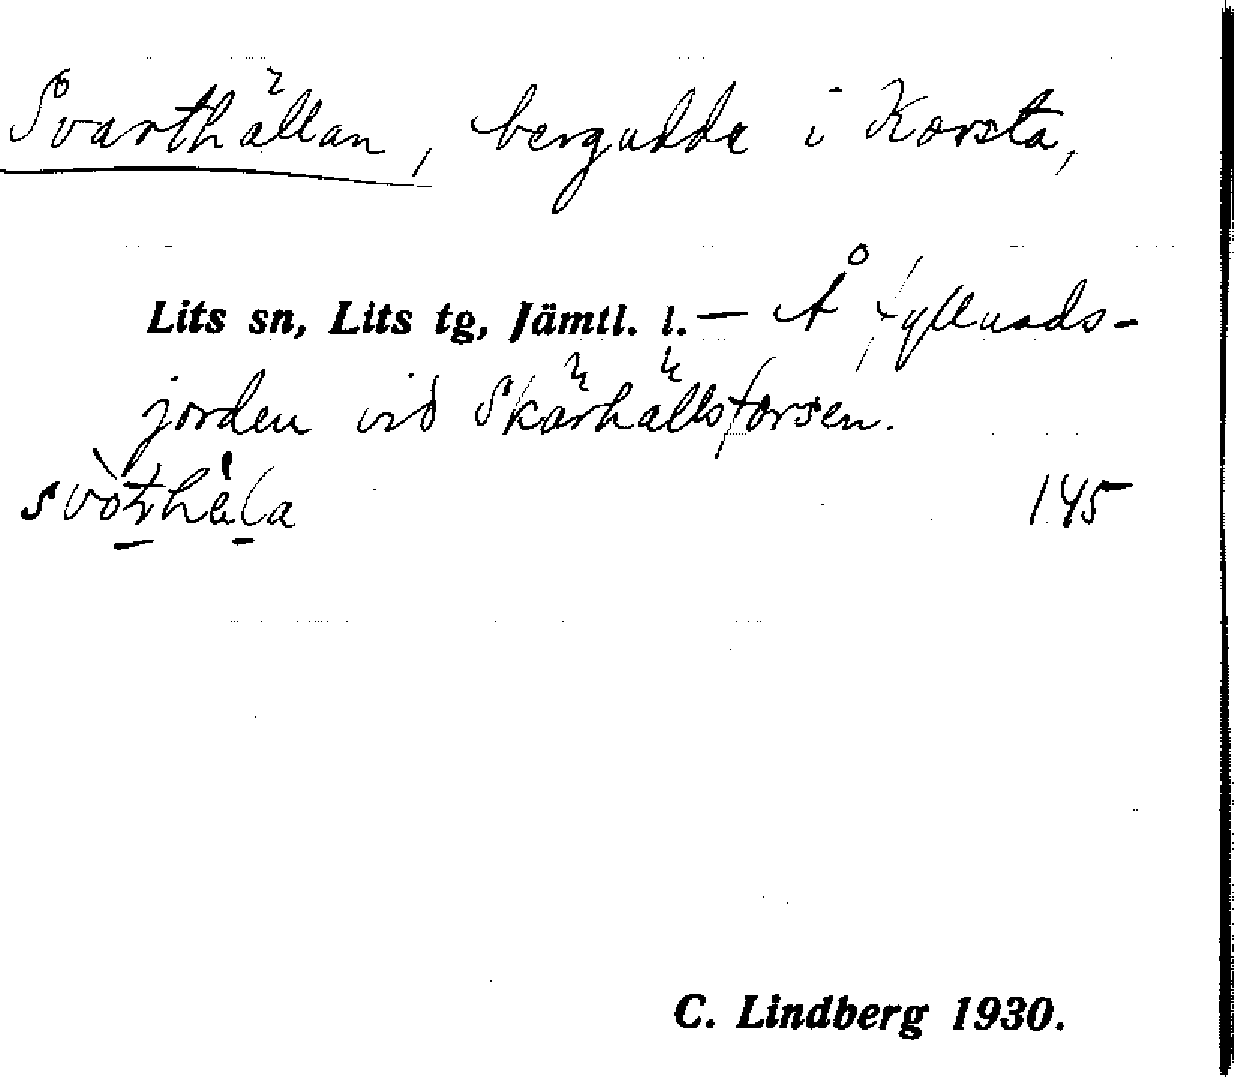 Svarthällan, bergudde i Korsta,
Lits sn, Lits tg, Jämtl. l. — Å fyllnads-
jorden vid Skärhällsforsen.
145
C. Lindberg 1930.